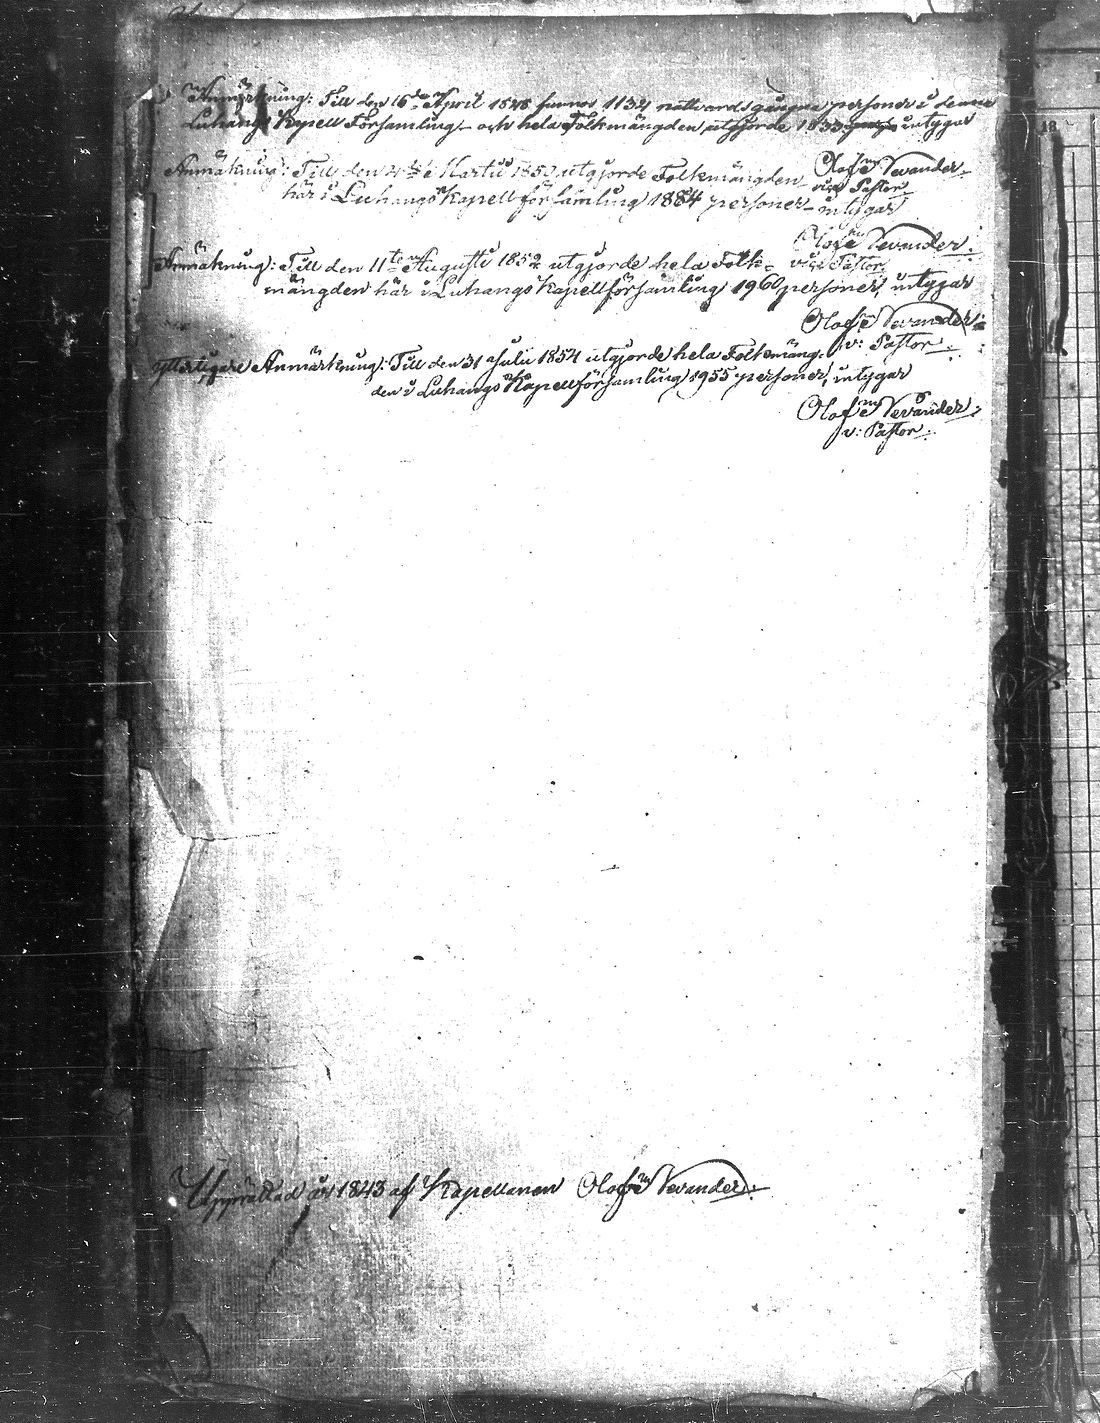 Anmärkning: Till den 16de April 1846 funnos 1134 nattvardsgångna personer i denna
Luhanga Kapell Församling – och hela Folkmängden utgjorde 1833 intygar
Olof Nevander
vice Pastor
Anmäkning: Till den Martii 1850 utgjorde Folkmängden
här i Luhanga Kapellförsamling 1884 personer – intygar
Olof Nevander.
vice Pastor
Anmäkning: Till den 11te Augusti 1852 utgjorde hela Folk-
mängden här i Luhanga Kapellförsamling 1960 personer, intygar
Olof Nevander.
v: Pastor.
ytterligare Anmärkning: Till den 31 Julii 1854 utgjorde hela Folkmäng-
den i Luhanga Kapellförsamling 1955 personer, intygar
Olof Nevander.
v: Pastor.
Upprättad år 1843 af Kapellanen Olof Nevander.
18